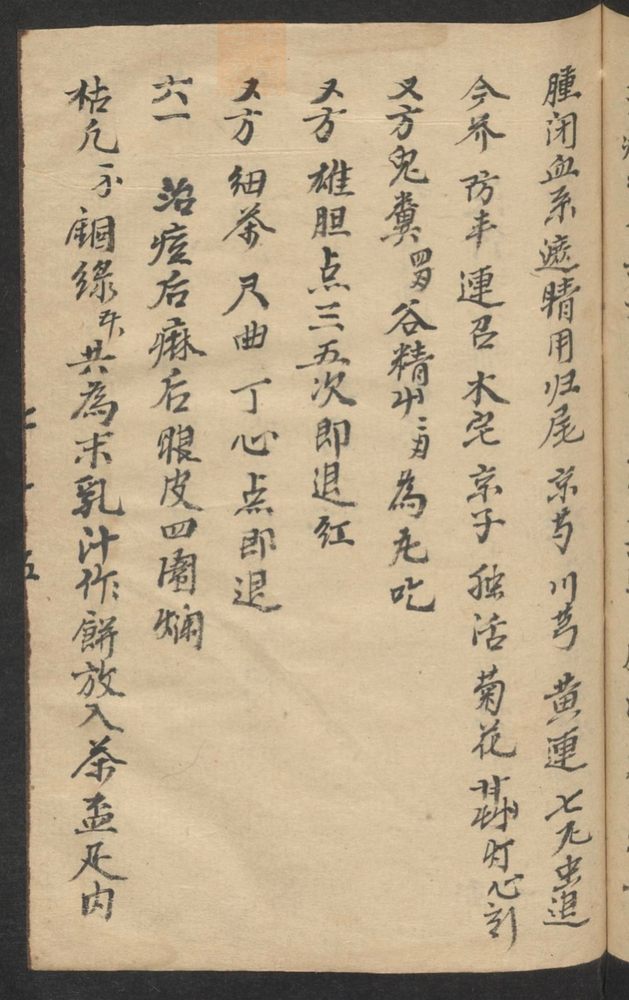 腫闭血系遮睛用归尾 京芍 川芎 黄連 七厘虫退
今芥 防丰 連召 木宅 京子 独活 菊花 灯心引
又方鬼糞 谷精 二 為丸吃
又方 雄胆点三五次即退红
又方 细茶 尺曲 丁心点即退
六一 治痘后痲后眼皮四圍爛
枯凡 銅綠 共為末乳汁作餅放入茶盃足内